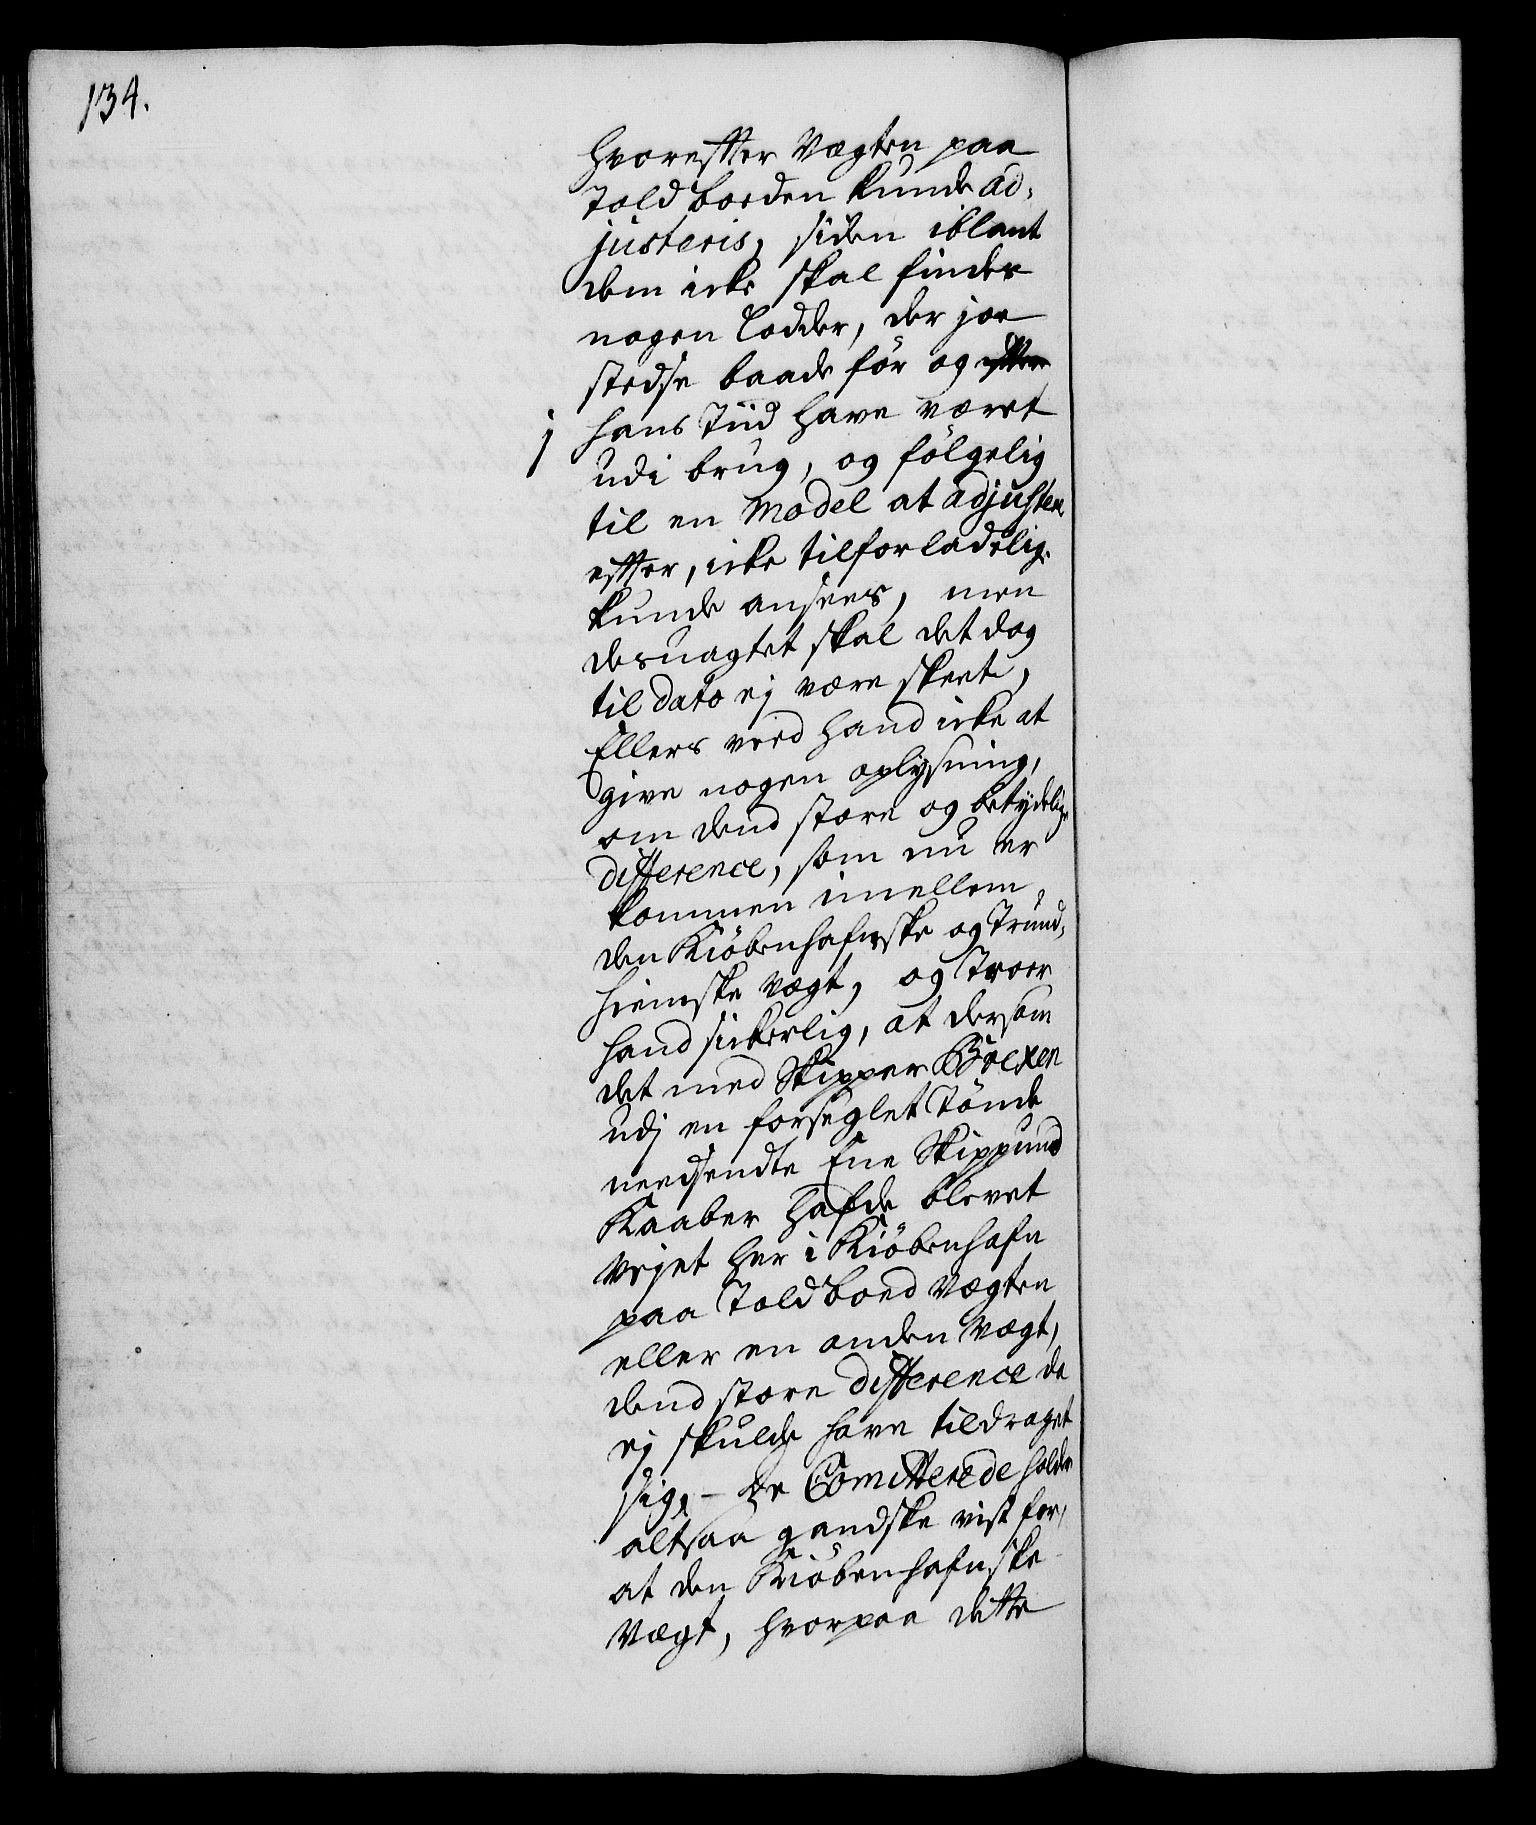 134.
hvoreffter Vægten paa
Toldboeden kunde ad-
justeris, siden iblant
dem icke skal findes
nogen Lodder, der joe
stedse baade för og
j hans Tiid have været
udi brug, og fölgelig
til en Model at adjustere
effter, icke tilforladelig
kunde ansees, men
desuagtet skal det dog
til dato ej være skeet,
Ellers veed hand icke at
give nogen oplysning,
om dend store og betydelige
difference, som nu er
kommen imellem
den Kiöbenhafnske og Trund-
hiemske Vægt, og Troer
hand sickerlig, at dersom
det med Skipper
udj en forseglet Tönde
needsendte Ene Skippund
Kaaber hafde blevet
Vejet her i Kiöbenhafn
paa Toldboed Vægten
eller en anden Vægt,
dend store difference da
ej skulde have tildraget
sig, - De Comitterede holde
altsaa gandske vist for,
at den Kiöbenhafnske
Vægt, hvorpaa dette